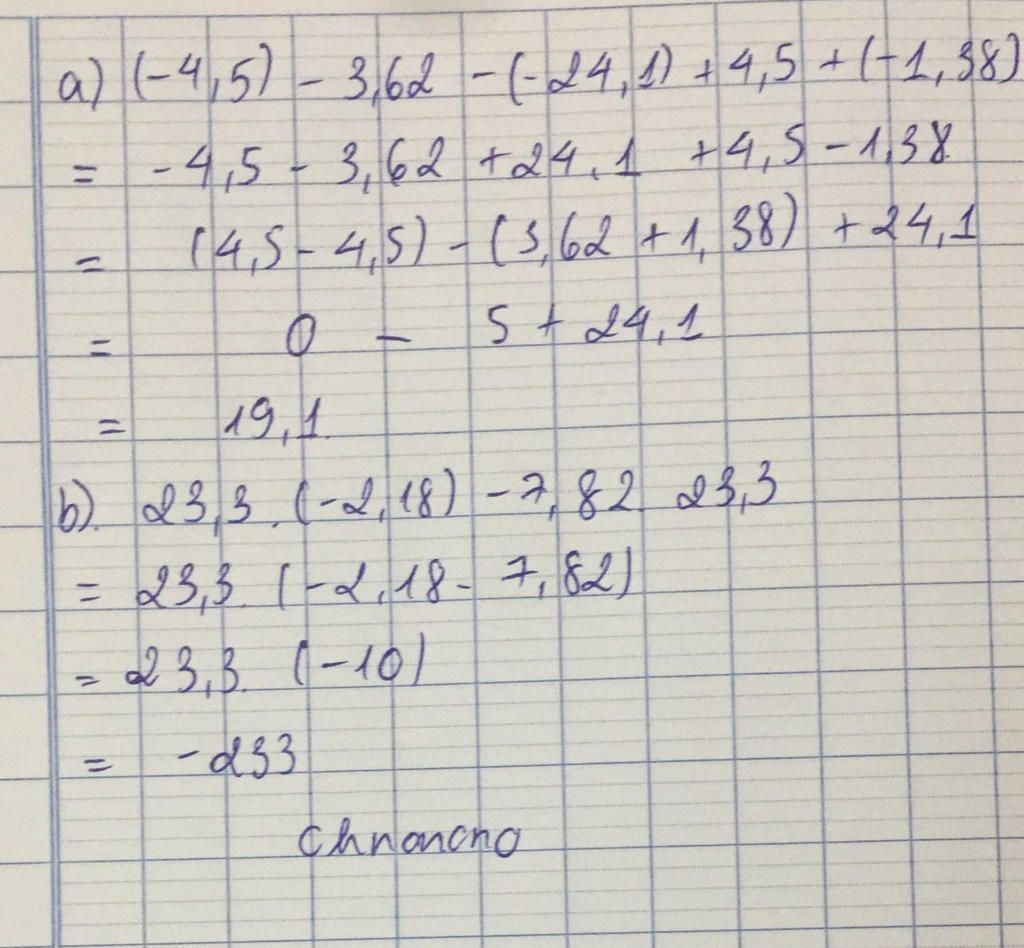 a) (-4,5) - 3,62 - (-24,1) + 4,5 + (-1,38)
= -4,5 - 3,62 + 24,1 + 4,5 - 1,38
= (4,5 - 4,5) - (3,62 + 1,38) + 24,1
= 0 - 5 + 24,1
= 19,1
b). 23,3. (-2,18) - 7,82. 23,3
= 23,3. (-2,18 - 7,82)
= 23,3. (-10)
= -233